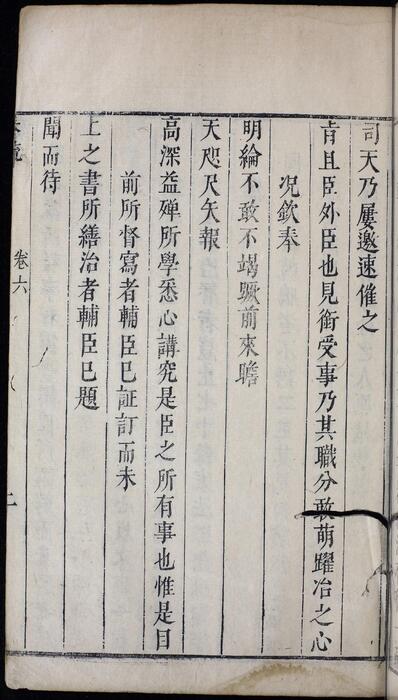 司天乃屢邀速催之
肯且臣外臣也見銜受事乃其職分敢萌躍冶之心
况欽奉
明綸不敢不竭蹶前來瞻
天咫尺矢報
高深益殫所學悉心講究是臣之所有事也惟是目
前所督寫者輔臣已証訂而未
上之書所繕治者輔臣已題
聞而待
卷六
二